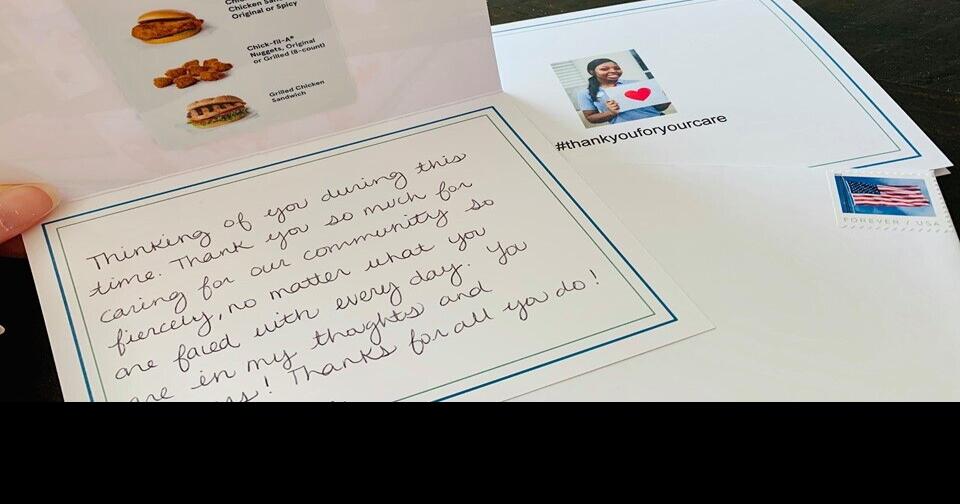 Chicken San
Original or Spicy
Chick-fil-A®
Nuggets, Original
or Grilled (8-count)
Grilled Chicken
Sandwich
#thankyouforyourcare
FOREVER / USA
Thinking of you during this
time. Thank you so much for
caring for our community so
fiercely, no matter what you
are faced with every day. You
are in my thoghts and
! Thanks for all you do!